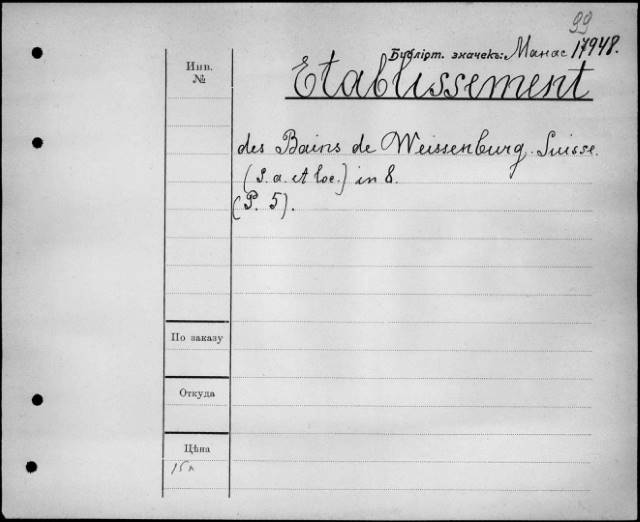 99
Библіот. значекъ: Манас 17948.
Инв.
№
Etablissement
des Bains de Weissenburg. Suisse.
(S. a. et loc.) in 8.
(P. 5).
По заказу
Откуда
Цѣна